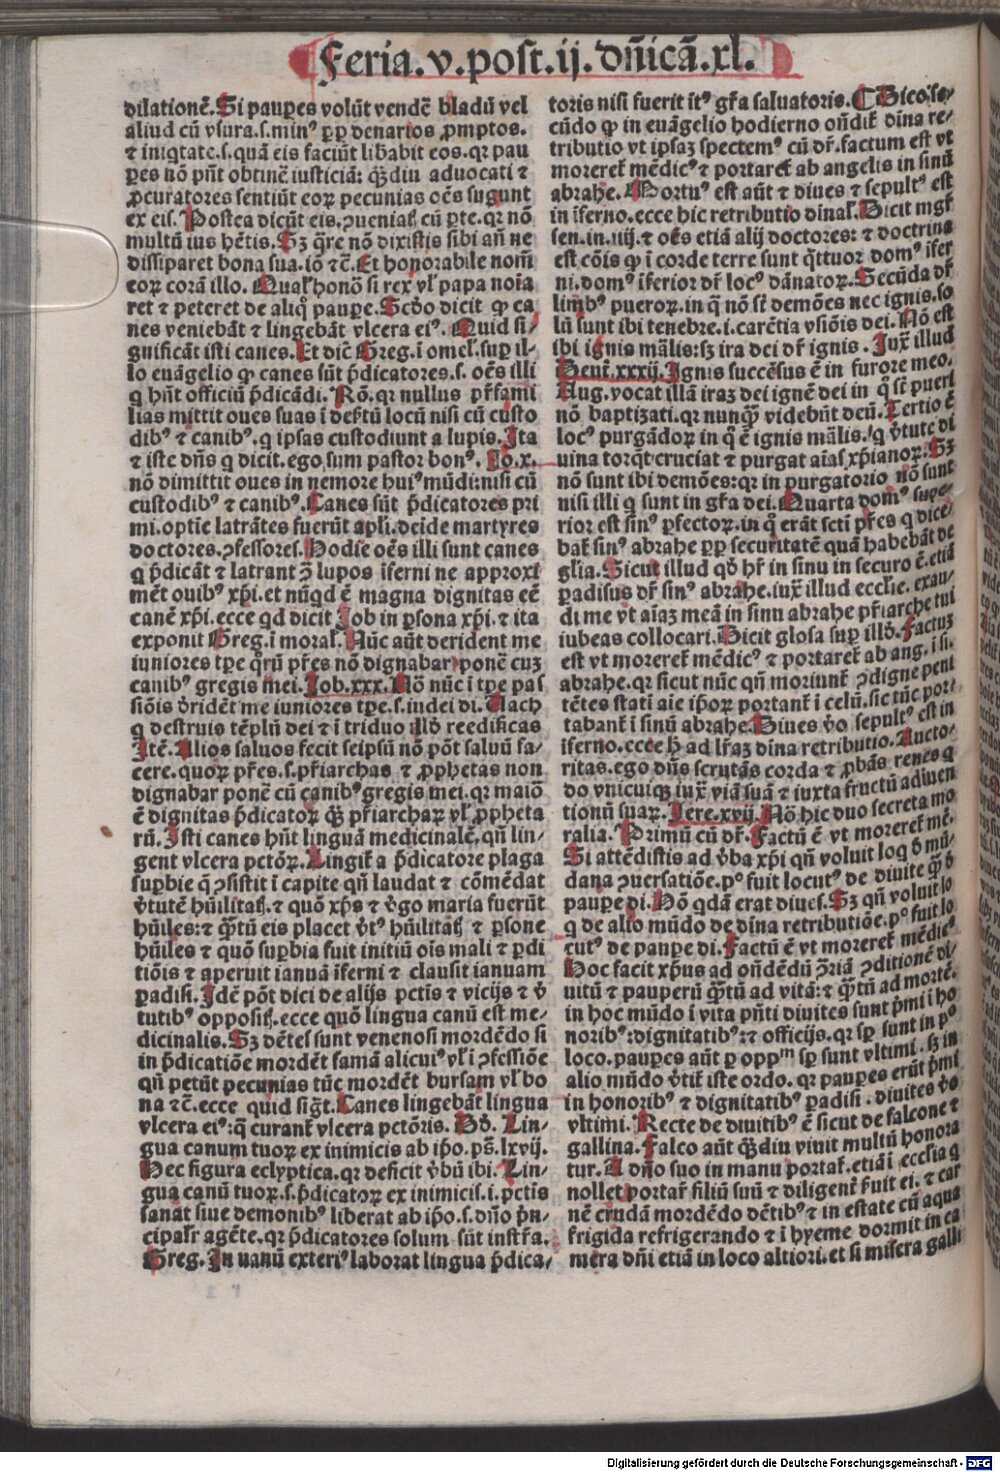 Feria.v.post.ij.dñicã.xl.
dilationẽ.Si pauꝑes volũt vendẽ bladũ vel
aliud cũ vsura.s.min⁹ ꝑꝑ denarios ꝓmptos.
⁊ iniqtate.s.quã eis faciũt lib̃abit eos.qꝛ pau
ꝑes nõ pñt obtinẽ iusticiã: qꝫdiu aduocati ⁊
ꝓcuratores sentiũt eoꝝ pecunias oẽs sugunt
ex eis. Postea dicũt eis.ꝯueniatꝭ cũ ꝑte.qꝛ nõ
multũ ius hẽtis. Sꝫ q̃re nõ dixistis sibi añ ne
dissiparet bona sua.iõ ⁊c̃. Et honorabile nom̃
eoꝝ corã illo. Qual̕ honõ si rex vl̕ papa noĩa
ret ⁊ peteret de aliq̃ pauꝑe. Scd̕o dicit ꝙ ca
nes veniebãt ⁊ lingebãt vlcera ei⁹. Quid si/
gnificãt isti canes. Et dic̃ Greg.ĩ omel̕.suꝑ il/
lo euãgelio ꝙ canes sũt p̃dicatores.s. oẽs illi
q hñt officiũ p̃dicãdi. Rõ.qꝛ nullus pr̃fami
lias mittit oues suas ĩ deẽtũ locũ nisi cũ custo
dib⁹ ⁊ canib⁹.q ipsas custodiunt a lupis. Ita
⁊ iste dñs q dicit.ego sum pastor bon⁹. Io.x.
nõ dimittit oues in nemore hui⁹ mũdi:nisi cũ
custodib⁹ ⁊ canib⁹. Canes sũt p̃dicatores pri
mi.optĩe latrãtes fuerũt apl̕i.deĩde martyres
doctores.ꝯfessores. Hodie oẽs illi sunt canes
q p̃dicãt ⁊ latrant ꝯ̃ lupos ĩferni ne approxi
mẽt ouib⁹ xp̃i.et nũqd ẽ magna dignitas eẽ
canẽ xp̃i.ecce qd dicit Job in ꝑsona xp̃i.⁊ ita
exponit Greg.ĩ moral̕. Nũc aũt derident me
iuniores tꝑe qr̃ũ pr̃es nõ dignabar ponẽ cuꝫ
canib⁹ gregis mei. Job.xxx. Nõ nũc ĩ tꝑe pas
siõis d̕ridẽt me iuniores tꝑe.s.iudei di. Uach
q destruis tẽplũ dei ⁊ ĩ triduo illd̕ reedificas
Itẽ. Alios saluos fecit seipsũ nõ põt saluũ fa/
cere.quoꝝ pr̃es.s.pr̃iarchas ⁊ ꝓphetas non
dignabar ponẽ cũ canib⁹ gregis mei.qꝛ maiõ
ẽ dignitas p̃dicatoꝝ qꝫ pr̃iarchaꝝ vl̕ ꝓpheta
rũ. Isti canes hñt linguã medicinalẽ.qñ lin/
gent vlcera pctõꝝ. Lingit̃ a p̃dicatore plaga
suꝑbie q̃ ꝯsistit ĩ capite qñ laudat ⁊ cõmẽdat
v̕tutẽ hũilitatꝭ.⁊ quõ xp̃s ⁊ v̕go maria fuerũt
hũiles:⁊ qꝫtũ eis placet v̕t⁹ hũilitatꝭ ⁊ ꝑsone
hũiles ⁊ quõ suꝑbia fuit initiũ oĩs mali ⁊ ꝑdi
tiõis ⁊ aperuit ianuã ĩferni ⁊ clausit ianuam
paradisi. Idẽ põt dici de alijs pctĩs ⁊ vicijs ⁊ v̕
tutib⁹ oppositꝭ.ecce quõ lingua canũ est me/
dicinalis. Sꝫ dẽtes sunt venenosi mordẽdo si
in p̃dicatiõe mordẽt famã alicui⁹ vl̕ ĩ ꝯfessiõe
qñ petũt pecunias tũc mordẽt bursam vl̕ bo
na ⁊c̃.ecce quid sig̃t. Canes lingebãt lingua
vlcera ei⁹:q̃ curant̃ vlcera pctõris. Dd̕. Lin/
gua canum tuoꝝ ex inimicis ab ip̃o.ps̃.lxvij.
Hec figura eclyptica.qꝛ deficit v̕bũ ibi. Lin/
gua canũ tuoꝝ.s.p̃dicatoꝝ ex inimicis.i.pctĩs
sanat siue demonib⁹ liberat ab ip̃o.s.dño p̃n/
cipalr̃ agẽte.qꝛ p̃dicatores solum sũt instr̃a.
Greg. In uanũ exteri⁹ laborat lingua p̃dica/
toris nisi fuerit ĩt⁹ gr̃a saluatoris. ¶ Dico se/
cũdo ꝙ in euãgelio hodierno oñdit̃ dĩna re/
tributio vt ipsaꝫ spectem⁹ cũ dr̃.factum est vt
moreret̃ mẽdic⁹ ⁊ portaret̃ ab angelis in sinũ
abrahe. Mortu⁹ est aũt ⁊ diues ⁊ sepult⁹ est
in ĩferno.ecce hic retributio dĩnal̕. Dicit mgr̃
sen.in.iiij.⁊ oẽs etiã alij doctores: ⁊ doctrina
est cõis ꝙ ĩ corde terre sunt qttuor dom⁹ ĩfer
ni.dom⁹ ĩferior dr̃ loc⁹ dãnatoꝝ. Secũda dr̃
limb⁹ pueroꝝ.in q̃ nõ st̃ demões nec ignis.so
lũ sunt ibi tenebre.i.carẽtia visiõis dei. Nõ est
ibi ignis mãlis:sꝫ ira dei dr̃ ignis . Iux̃ illud
Deut̃.xxxij. Ignis succẽsus ẽ in furore meo.
Aug.vocat illã iraꝫ dei ignẽ dei in q̃ st̃ pueri
nõ baptizati.qꝛ nunqꝫ videbũt deũ. Tertio ẽ
loc⁹ purgãdoꝝ in q̃ ẽ ignis mãlis.q v̕tute di
uina torqt̃ cruciat ⁊ purgat aĩas xp̃ianoꝝ. Sꝫ
nõ sunt ibi demões:qꝛ in purgatorio nõ sunt
nisi illi q sunt in gr̃a dei. Quarta dom⁹ supe/
rior est sin⁹ ꝑfectoꝝ.in q̃ erãt scti pr̃es q dice/
bat̃ sin⁹ abrahe ꝑꝑ securitatẽ quã habebãt de
gl̃ia. Sicut illud qd̕ hr̃ in sinu in securo ẽ.etiã
paradisus dr̃ sin⁹ abrahe.iux̃ illud eccl̕ie. exau/
di me vt aĩaꝫ meã in sinu abrahe pr̃iarche tui
iubeas collocari. Dicit glosa suꝑ illd̕. Factuꝫ
est vt moreret̃ mẽdic⁹ ⁊ portaret̃ ab ang. ĩ si.
abrahe.qꝛ sicut nũc qñ moriunt̃ ꝯdigne peni
tẽtes stati aĩe ip̃oꝝ portant̃ ĩ celũ.sic tũc por/
tabant̃ ĩ sinũ abrahe. Diues v̕o sepult⁹ est in
ĩferno.ecce h̕ ad lr̃aꝫ dĩna retributio. Aucto/
ritas.ego dñs scrutãs corda ⁊ ꝓbãs renes q
do vnicuiqꝫ iux̃ viã suã ⁊ iuxta fructũ adiuen
tionũ suaꝝ. Jere.xvij. Nõ hic duo secreta mo
ralia. Primũ cũ dr̃. Factũ ẽ vt moreret̃ mẽ.
Si attẽdistis ad v̕ba xp̃i qñ voluit loq̃ d̕ mũ/
dana ꝯuersatiõe.p⁰ fuit locut⁹ de diuite qꝫ d̕
pauꝑe di. Hõ qdã erat diues. Sꝫ qñ voluit lo
q de alio mũdo de dĩna retributiõe.p⁰ fuit lo
cut⁹ de pauꝑe di. Factũ ẽ vt moreret̃ mẽdic⁹
Hoc facit xp̃us ad oñdẽdũ ꝯ̃riã ꝯditionẽ di/
uitũ ⁊ pauperũ qꝫtũ ad vitã:⁊ qꝫtũ ad mortẽ.
in hoc mũdo ĩ vita pñti diuites sunt p̃mi ĩ ho
norib⁹:dignitatib⁹:⁊ officijs.qꝛ sꝑ sunt in p⁰
loco.pauꝑes aũt ꝑ oppᵐ sꝑ sunt vltimi. sꝫ in
alio mũdo v̕tit̃ iste ordo. qꝛ pauꝑes erũt p̃mi
in honorib⁹ ⁊ dignitatib⁹ paradisi . diuites v̕o
vltimi. Recte de diuitib⁹ ẽ sicut de falcone ⁊
gallina. Falco aũt qꝫdiu viuit multũ honora
tur. A dño suo in manu portat̃.etiã ĩ ecclĩa q
nollet portar̃ filiũ suũ ⁊ diligent̃ ẽuit ei. ⁊ car
nẽ crudã mordẽdo dẽtib⁹ ⁊ in estate cũ aqua
frigida refrigerando ⁊ ĩ hyeme dormit in ca
mera dñi etiã in loco altiori.et si misera galli
Digitalisierung gefördert durch die Deutsche Forschungsgemeinschaft - DFG